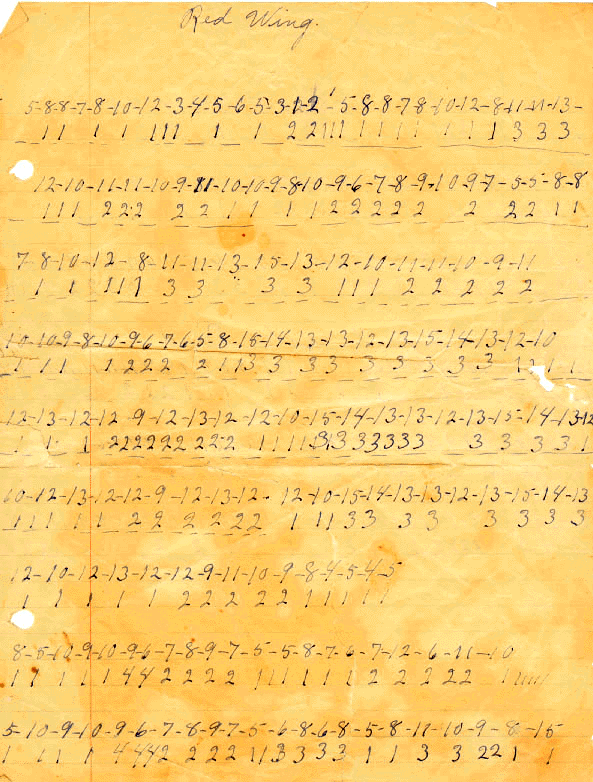 Red Wing.
5-8-8-7-8-10-12-3-4-5-6-5-3-1-2-5-8-8-7-8-10-12-8-11-11-13-
11 1 1 111 1 1 2 2111 1 1 1 1 1 1 1 3 3 3
12-10-11-11-10-9-11-10-10-9-8-10-9-6-7-8-9-10-9-7-5-5-8-8
111 222 2 2 1 1 1 1 2 2 2 2 2 2 2 2 1 1
7-8-10-12-8-11-11-13-15-13-12-10-11-11-10-9-11
1 1 111 3 3 3 3 111 2 2 2 2 2
10-10-9-8-10-9-6-7-6-5-8-15-14-13-13-12-13-15-14-13-12-10
1 11 1 222 2 113 3 33 3 3 3 3 3 1
12-13-12-12-9-12-13-12-12-10-15-14-13-13-12-13-15-14-13-12
1 1 1 222222 222 1111 3333333 3 3 3 3 1
10-12-13-12-12-9-12-13-12-12-10-15-14-13-13-12-13-15-14-13
11111 2 2 2 2 2 2 1 11 33 3 3 3 3 3 3
12-10-12-13-12-12-9-11-10-9-8-4-5-4-5
1 1 1 1 1 2 2 2 2 2 1 1 1 1 1
8-5-10-9-10-9-6-7-8-9-7-5-5-8-7-6-7-12-6-11-10
1 1 1 1 1 4 4 2 2 2 2 111 1 1 1 2 2 2 22
5-10-9-10-9-6-7-8-9-7-5-6-8-6-8-5-8-11-10-9-8-15
1 11 1 4442 2 2 2 113 3 3 3 1 1 3 3 22 1 1